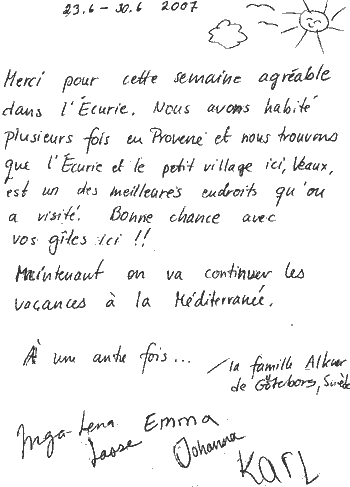 23.6 – 30.6 2007
Merci pour cette semaine agréable
dans l'Écurie. Nous avons habité
plusieurs fois en Provene et nous trouvons
que l'Écurie et le petit village ici, Veaux,
est un des meilleures endroits qu'on
a visité. Bonne chance avec
vos gîtes ici !!
Maintenant on va continuer les
vacances à la Méditerranée.
À une autre fois...
la famille
de Göteborg, Suède
Inga-Lena Emma
Lasse Johanna
Karl